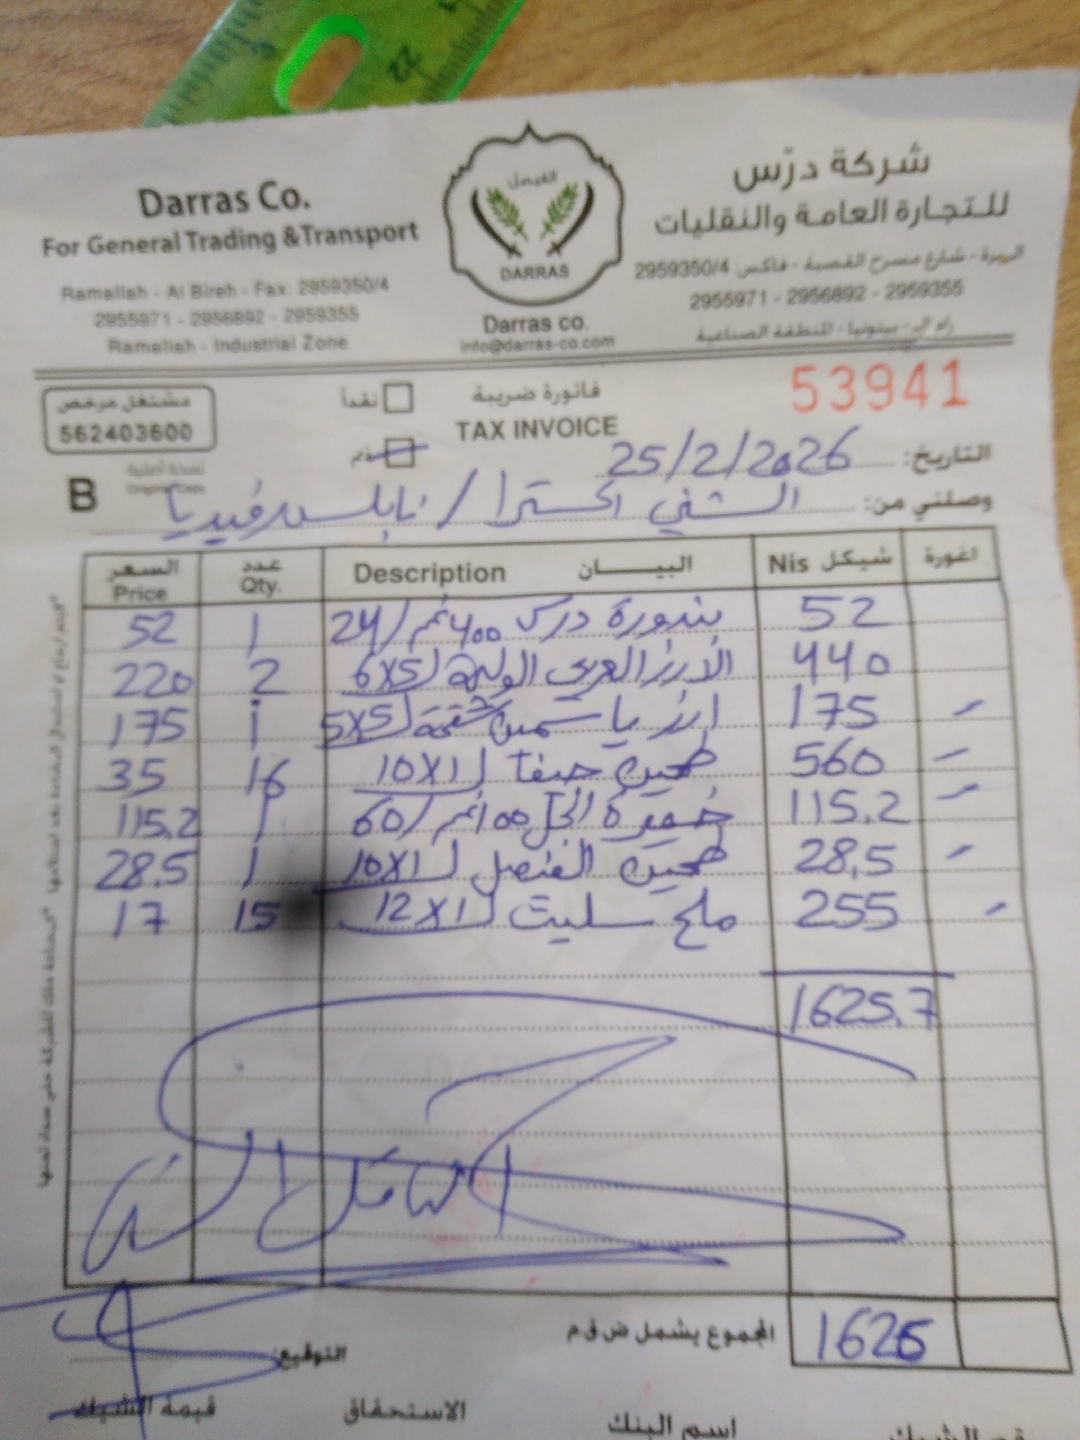 22
Darras Co.
For General Trading &Transport
Ramallah - Al Bireh - Fax: 2959350/4
2955971 - 2956892 - 2959355
Ramallah - Industrial Zone
الفيصل
DARRAS
Darras co.
info@darras-co.com
شركة درّس
للتجارة العامة والنقليات
البيرة - شارع مسرح القصبة - فاكس 2959350/4
2955971 - 2956892 - 2959355
رام الله - بيتونيا - المنطقة الصناعية
مشتغل مرخص
562403600
نقداً
ذمم
فاتورة ضريبة
TAX INVOICE
53941
التاريخ: 25/2/2026
نسخة أصلية
Original Copy
B
وصلني من: الشفي اكسترا / نابلس رفيديا
السعر Price عدد Qty. البيــــــان Description شيكل Nis اغورة
52 1 بندورة درس 400غم/24 52
220 2 الارز العربي الوليمة 6X5 440
175 1 ارز ياسمين شقحة 5X5 175
35 16 طحين صنفا 10X1 560
115.2 1 خميرة الخل 100غم/60 115.2
28.5 1 طحين الفيصل 10X1 28,5
17 15 ملح سليت 12X1 255
1625.7
المجموع يشمل ض ق م 1625
التوقيع:
قيمة الشيك
الاستحقاق
اسم البنك
رقم الشيك